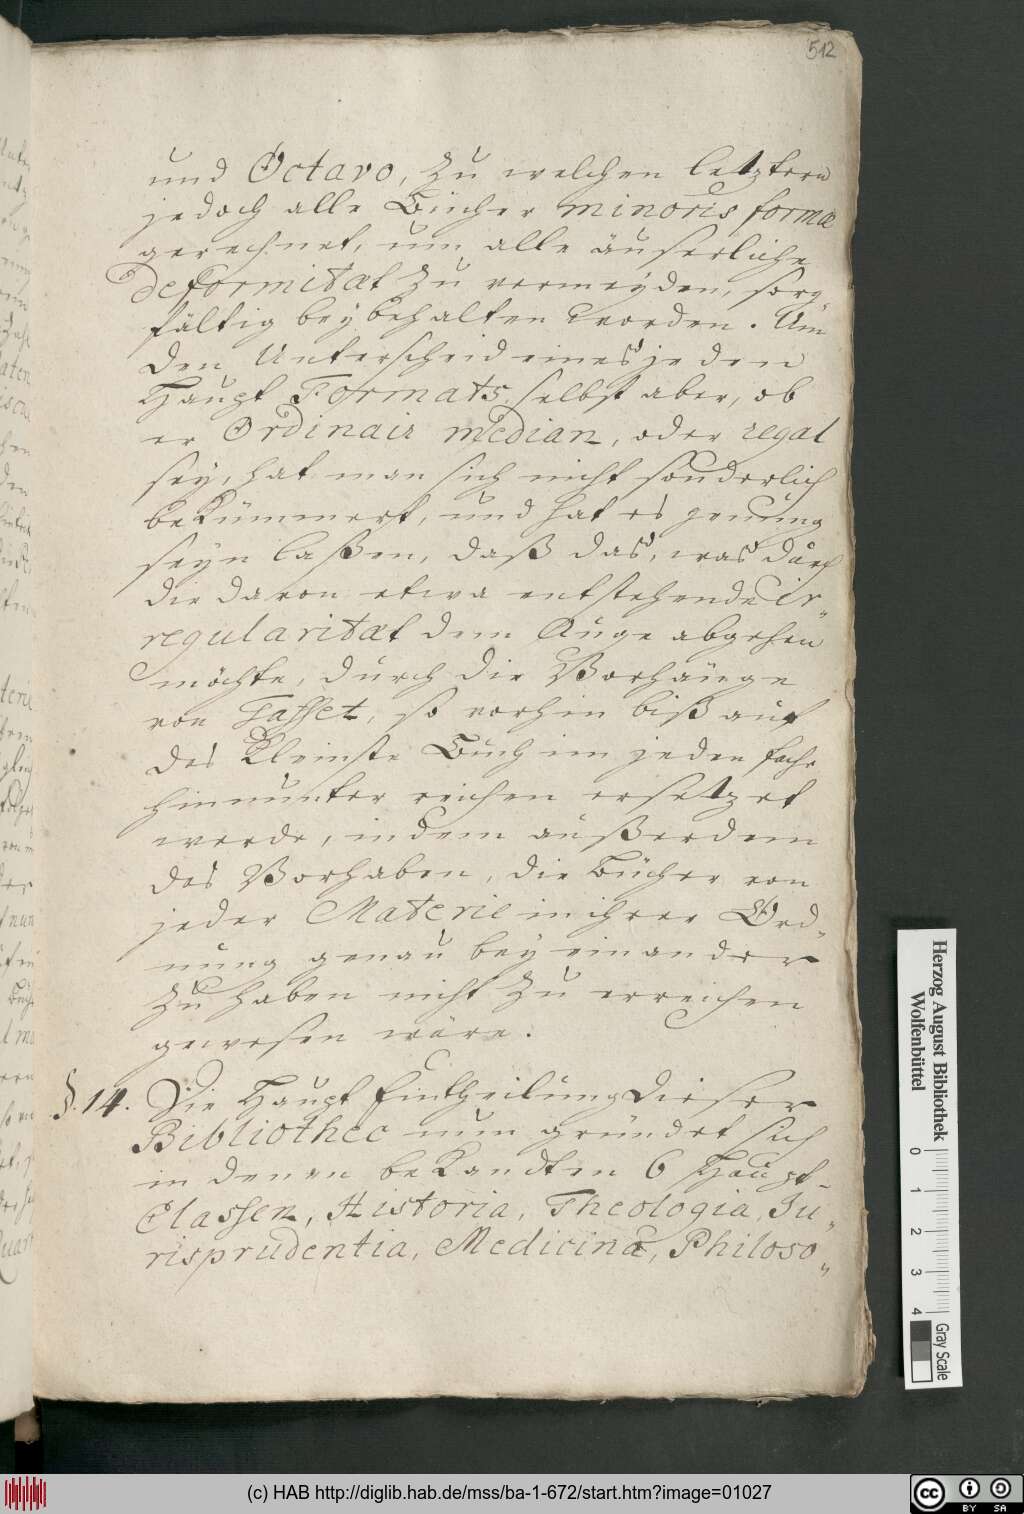 512
und Octavo, zu welchen letztern
jedoch alle Bücher minoris formæ
gerechnet, um alle äuserliche
Deformitæt zu vermeyden, sorg„
fältig beybehalten worden. Um
den Unterscheid eines jeden
Haupt Formats selbst aber, ob
er Ordinair median, oder regal
sey, hat man sich nicht sonderlich
bekümmert, und hat es genung
seyn laßen, daß das, was durch
die davon etwa entstehende Ir„
regularitæt dem Auge abgehen
möchte, durch die Vorhänge
von Taffet, so vorhin biß auf
das kleinste Buch im jeden fache
hinnunter reichen ersetzet
werde, indem außerdem
das Vorhaben, die Bücher von
jeder Materie in ihrer Ord„
nung genau bey einander
zu haben nicht zu erreichen
gewesen wäre.
§. 14. Die Haupt Eintheilung dieser
Bibliothec nun gründet sich
in denen bekandten 6 Haupt-
Classen, Historia, Theologia, Ju„
risprudentia, Medicina, Philoso„
Herzog August Bibliothek
Wolfenbüttel
0 1 2 3 4
Gray Scale
(c) HAB http://diglib.hab.de/mss/ba-1-672/start.htm?image=01027
cc BY SA